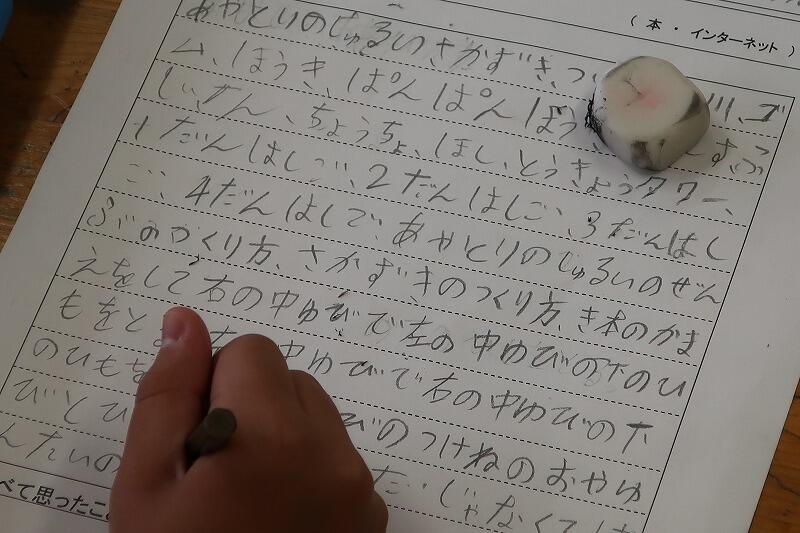 (本・インターネット)
あやとりのじゅるい、さかずき、つ 川、ゴ
ム、ほうき、ぱんぱんぼう す、ふ
じさん、ちょうちょ、ほし、とうきょうタワー、
1だんはしご、2だんはしご、3だんはし
ご、4だんはしご、あやとりのじゅるいのぜん
ぶのつくり方、さかずきのつくり方、き本のかま
えをして右の中ゆびで左の中ゆびの下のひ
もをと 中ゆびで右の中ゆびの下
のひもを びのつけねのおやゆ
びとひ じゃなくて
んたいの
べて思ったこ